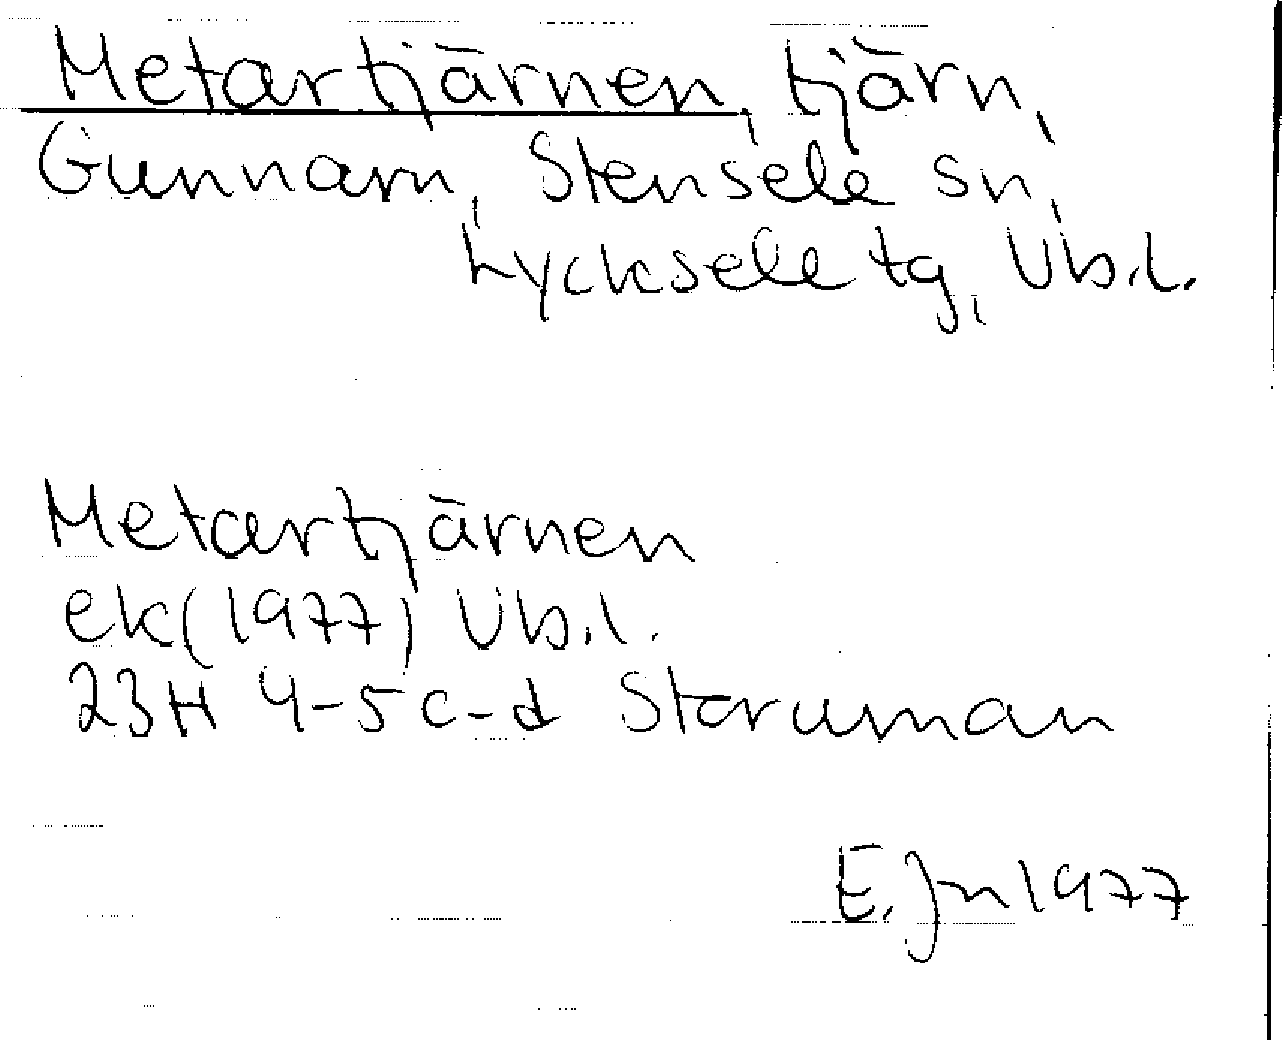 Metartjärnen, tjärn,
Gunnarn, Stensele sn,
Lycksele tg, Vb.l.
Metartjärnen
ek(1977) Vb.l.
23H 4-5 c-d Storuman
E. Jn 1977